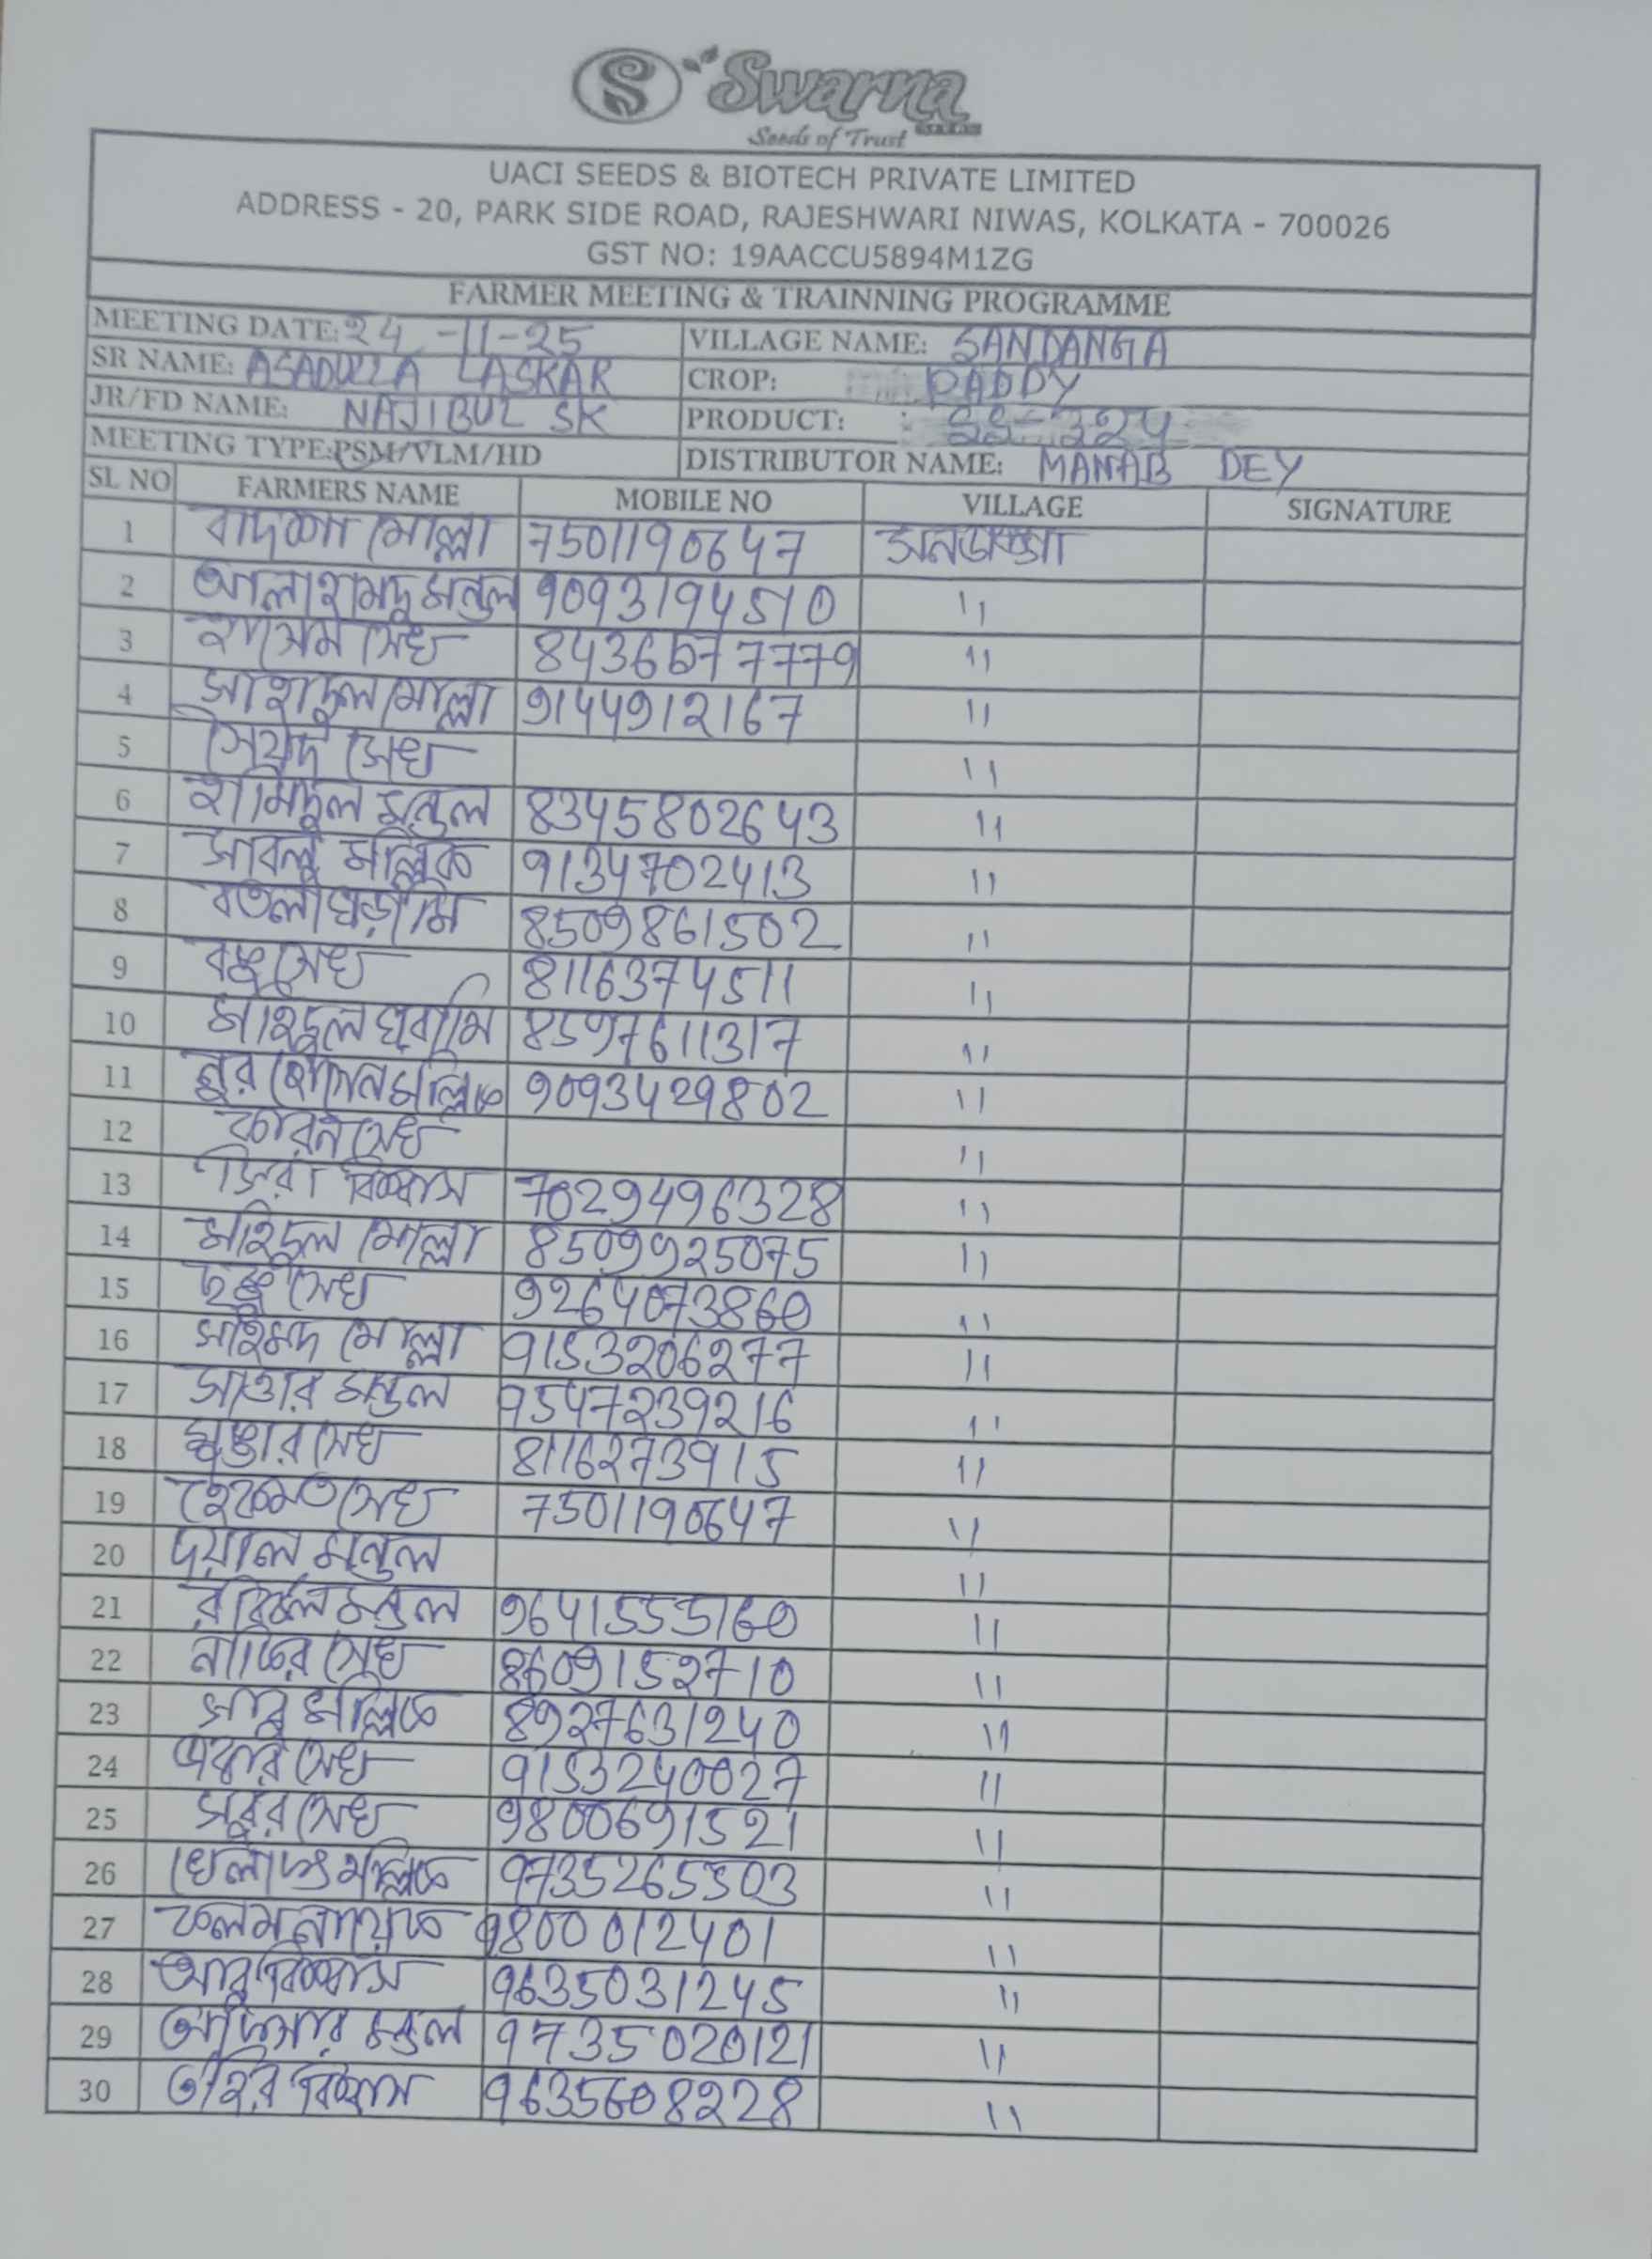 S Swarna
SEEDS
Seeds of Trust
UACI SEEDS & BIOTECH PRIVATE LIMITED
ADDRESS - 20, PARK SIDE ROAD, RAJESHWARI NIWAS, KOLKATA - 700026
GST NO: 19AACCU5894M1ZG
FARMER MEETING & TRAINNING PROGRAMME
MEETING DATE: 24-11-25 VILLAGE NAME: SANDANGA
SR NAME: ASADULLA LASKAR CROP: PADDY
JR/FD NAME: NAJIBUL SK PRODUCT: SS-324
MEETING TYPE:PSM/VLM/HD DISTRIBUTOR NAME: MANAB DEY
SL NO FARMERS NAME MOBILE NO VILLAGE SIGNATURE
1 বাদশা মোল্লা 7501190647 সনডাঙ্গা
2 আলাহামদু মন্ডল 9093194510 "
3 হাসেম সেখ 8436677779 "
4 সাহাদুল মোল্লা 9144912167 "
5 সৈয়দ সেখ "
6 হামিদুল মন্ডল 8345802643 "
7 সাবলু মল্লিক 9134702413 "
8 8509861502 "
9 সেখ 8116374511 "
10 সাইদুল ঘরামি 8597611317 "
11 নুর হোসেন মল্লিক 9093429802 "
12 সেখ "
13 বিশ্বাস 7029496328 "
14 মহিদুল মোল্লা 8509925075 "
15 সেখ 9264073860 "
16 মোল্লা 9153206277 "
17 সাত্তার মন্ডল 9547239216 "
18 মুক্তার সেখ 8116273915 "
19 হেকমত সেখ 7501190647 "
20 দয়াল মন্ডল "
21 মন্ডল 9641555160 "
22 সেখ 8609152710 "
23 সাবু মল্লিক 8927631240 "
24 সেখ 9153240027 "
25 সবুর সেখ 9800691521 "
26 মল্লিক 9735265503 "
27 কলম নায়েক 9800012401 "
28 আবু বিশ্বাস 9635031245 "
29 মন্ডল 9735020121 "
30 তাহির বিশ্বাস 9635608228 "